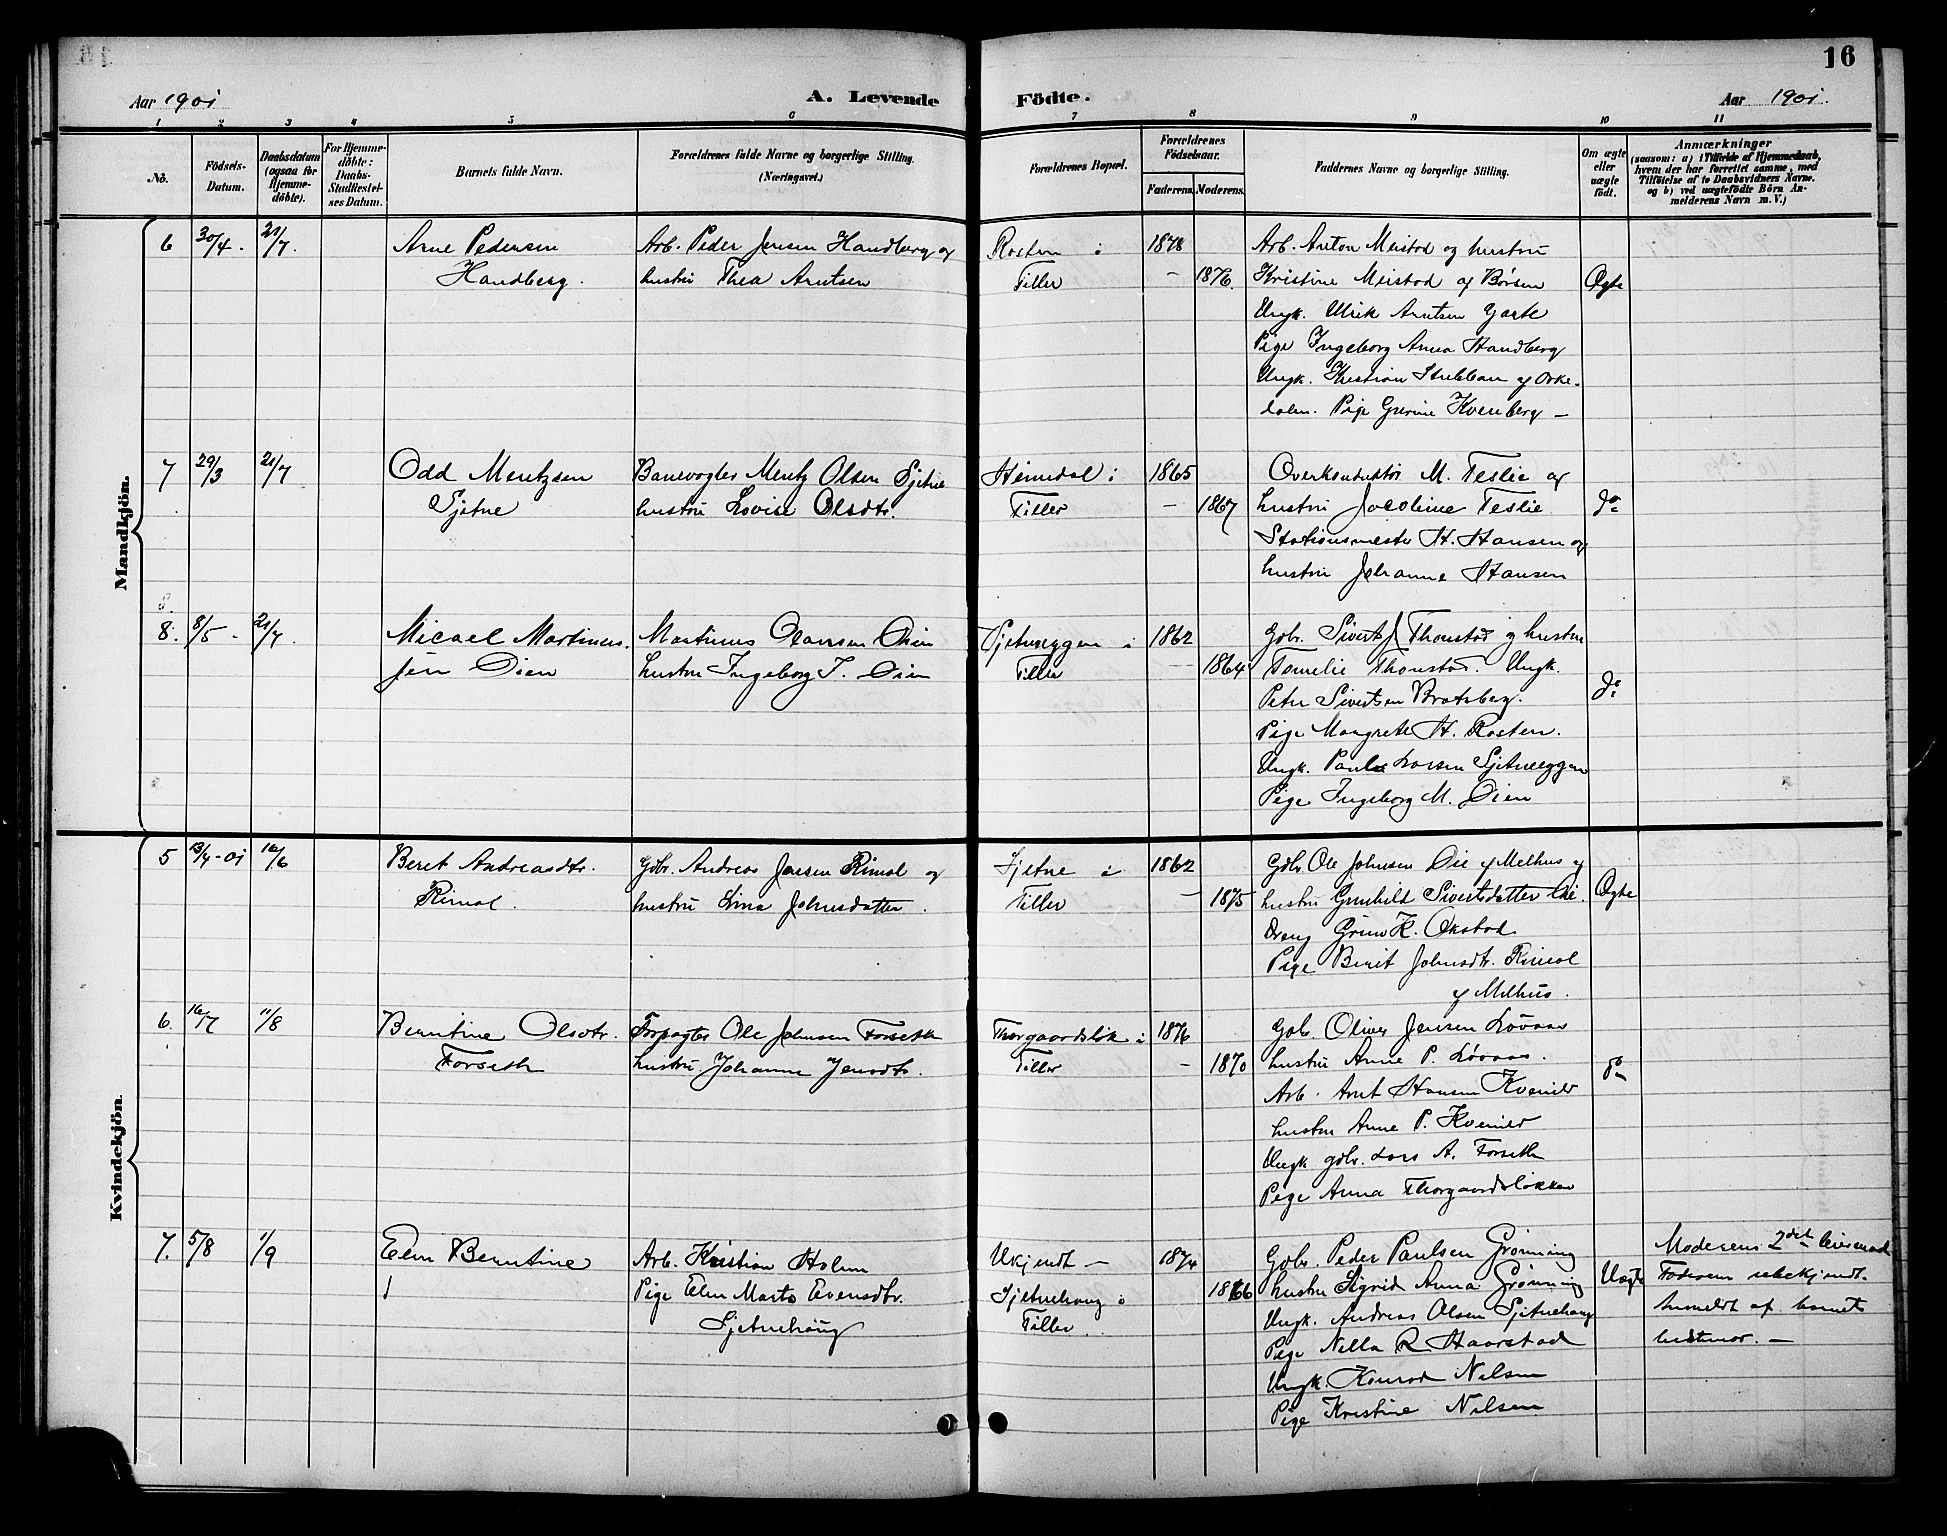 16
Aar 1901
A. Levende Födte.
Aar 1901.
1 2 3 4 5 6 7 8 9 10 11
No.
Födsels-Datum.
Daabsdatum (ogsaa for Hjemme-döbte).
For Hjemme-döbte: Daabs-Stadfæstel-ses Datum.
Barnets fulde Navn.
Forældrenes fulde Navne og borgerlige Stilling.
(Næringsvei.)
Forældrenes Bopæl.
Forældrenes Födselsaar.
Faderens. Moderens.
Faddernes Navne og borgerlige Stilling.
Om ægte eller uægte födt.
Anmærkninger
(saasom: a) i Tilfælde af Hjemmedaab,
hvem der har forrettet samme, med
Tilföielse af to Daabsvidners Navne.
og b) ved uægtefödte Börn An-
melderens Navn m. V.)
Mandkjön.
6 30/4 . 21/7 Arne Pedersen Arb. Peder Jensen Handberg og Rosten i 1878 Arb. Anton Meistad og hustru
Handberg. hustru Thea Arntsen Tiller — 1876. Kristine Meistad af Börsen Ægte
Ungk. Ulrik Arntsen
Pige Ingeborg Anna Handberg
Ungk. Kristian Stubban af Orke-
dalen. Pige Kvenberg —
7 29/3 21/7 Odd Mentzsen Banevogter Mentz Olsen Sjetne Heimdal i 1865 Overkonduktör M. Teslie og
Sjetne hustru Lovise Olsdtr. Tiller — 1867 hustru Jacoline Teslie do
Stationsmester H. Hansen og
hustru Johanne Hansen
8. 8/5 - 21/7 Micael Martinus- Martinus Olausen Öien Sjetneeggen i 1862 Gbr. Sivert J Thonstad og hustru
sen Öien hustru Ingeborg J. Öien Tiller — 1864 Thonstad. Ungk.
do
Peter Sivertsen Bratsberg.
Pige Margrete H. Rosten.
Ungk. Paul Larsen Sjetneeggen
Pige Ingeborg M. Öien
Kvindekjön.
5 13/4-01 16/6 Beret Andreasdtr. Gbr. Andreas Jensen Rimol og Sjetne i 1862 Gbr Ole Johnsen Öie af Melhus og
Rimol. hustru Lina Johnsdatter. Tiller — 1875 hustru Gunhild Sivertsdatter Öie. Ægte
Dreng K. Okstad
Pige Beret Johnsdtr. Rimol
af Melhus.
6. 16/7 11/8 Berntine Olsdtr. Forpagter Ole Johnsen Forseth Thorgaardsløk i 1876 Gbr Oliver Jensen Lövaas
Forseth hustru Johanna Jensdtr. Tiller — 1870 hustru Anne P. Lövaas. do
Arb. Arnt Hansen Kvenild
hustru Anne P. Kvenild
Ungk gbr. Lars A. Forseth
Pige Anna Thorgaardsløkken
7. 5/8 1/9 Elen Berntine Arb. Kristian Holm Ukjendt — 1874 Gbr. Peder Paulsen Grønning Moderens 2det leiermaal
Pige Elen Marta Evensdtr. Sjetnehaug i 1866 hustru Sigrid Anna Grønning Uægte Faderen ubekjendt.
Sjetnehaug Tiller. Ungk. Andreas Olsen Sjetnehaug Anmeldt af barnets
Pige Nella R Haarstad bedstmor. —
Ungk. Konrad Nilsen
Pige Kristine Nilsen